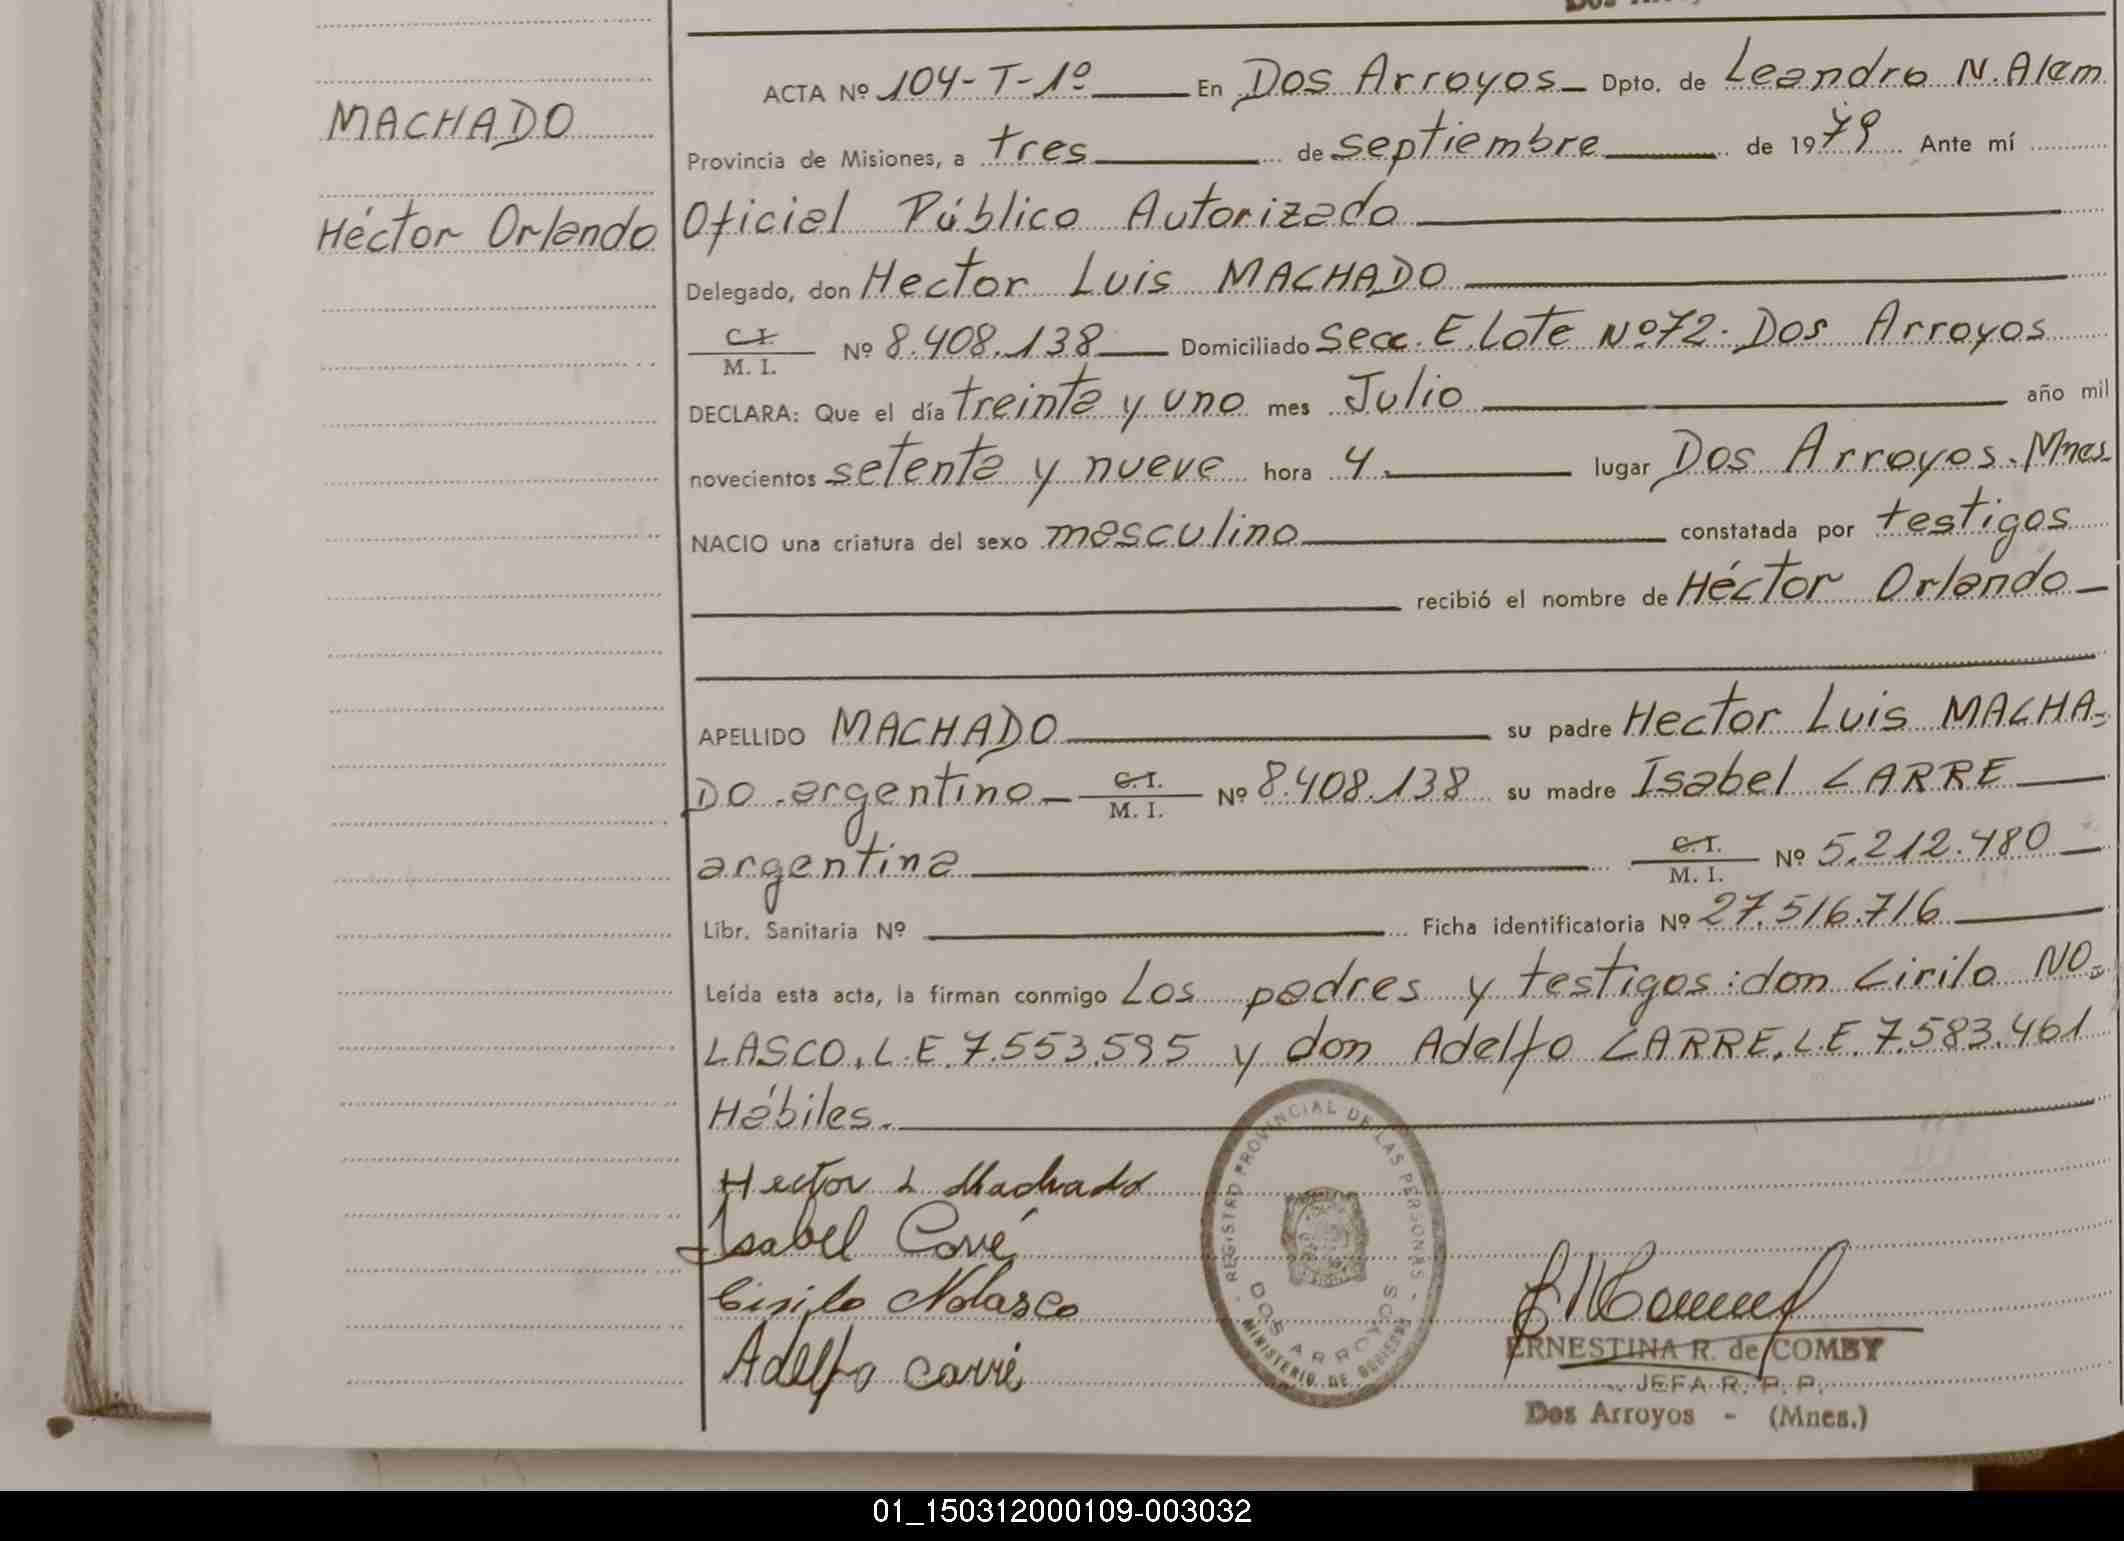 MACHADO
Héctor Orlando
ACTA Nº 104-T-1º En Dos Arroyos Dpto. de Leandro N. Alem
Provincia de Misiones, a tres de septiembre de 1979 Ante mí
Oficial Público Autorizado
Delegado, don Hector Luis MACHADO
C.I.
M. I. Nº 8.408.138 Domiciliado Secc. E Lote Nº 72. Dos Arroyos
DECLARA: Que el día treinta y uno mes Julio año mil
novecientos setenta y nueve hora 4. lugar Dos Arroyos. Mnes
NACIO una criatura del sexo masculino constatada por testigos
recibió el nombre de Héctor Orlando
APELLIDO MACHADO su padre Hector Luis MACHA-
DO. argentino C.I. M. I. Nº 8.408.138 su madre Isabel CARRE
argentina C.I. M. I. Nº 5.212.480
Libr. Sanitaria Nº Ficha identificatoria Nº 27.516.716
Leída esta acta, la firman conmigo Los padres y testigos: don Cirilo NO-
LASCO. L.E. 7.553.595 y don Adelfo CARRE. L.E. 7.583.461
Hábiles.
Hector L Machado
Isabel Carré
Cirilo Nolasco
Adelfo Carré
REGISTRO PROVINCIAL DE LAS PERSONAS
DOS ARROYOS
MINISTERIO DE GOBIERNO
ERNESTINA R. de COMBY
JEFA R. P. P.
Dos Arroyos - (Mnes.)
01_150312000109-003032